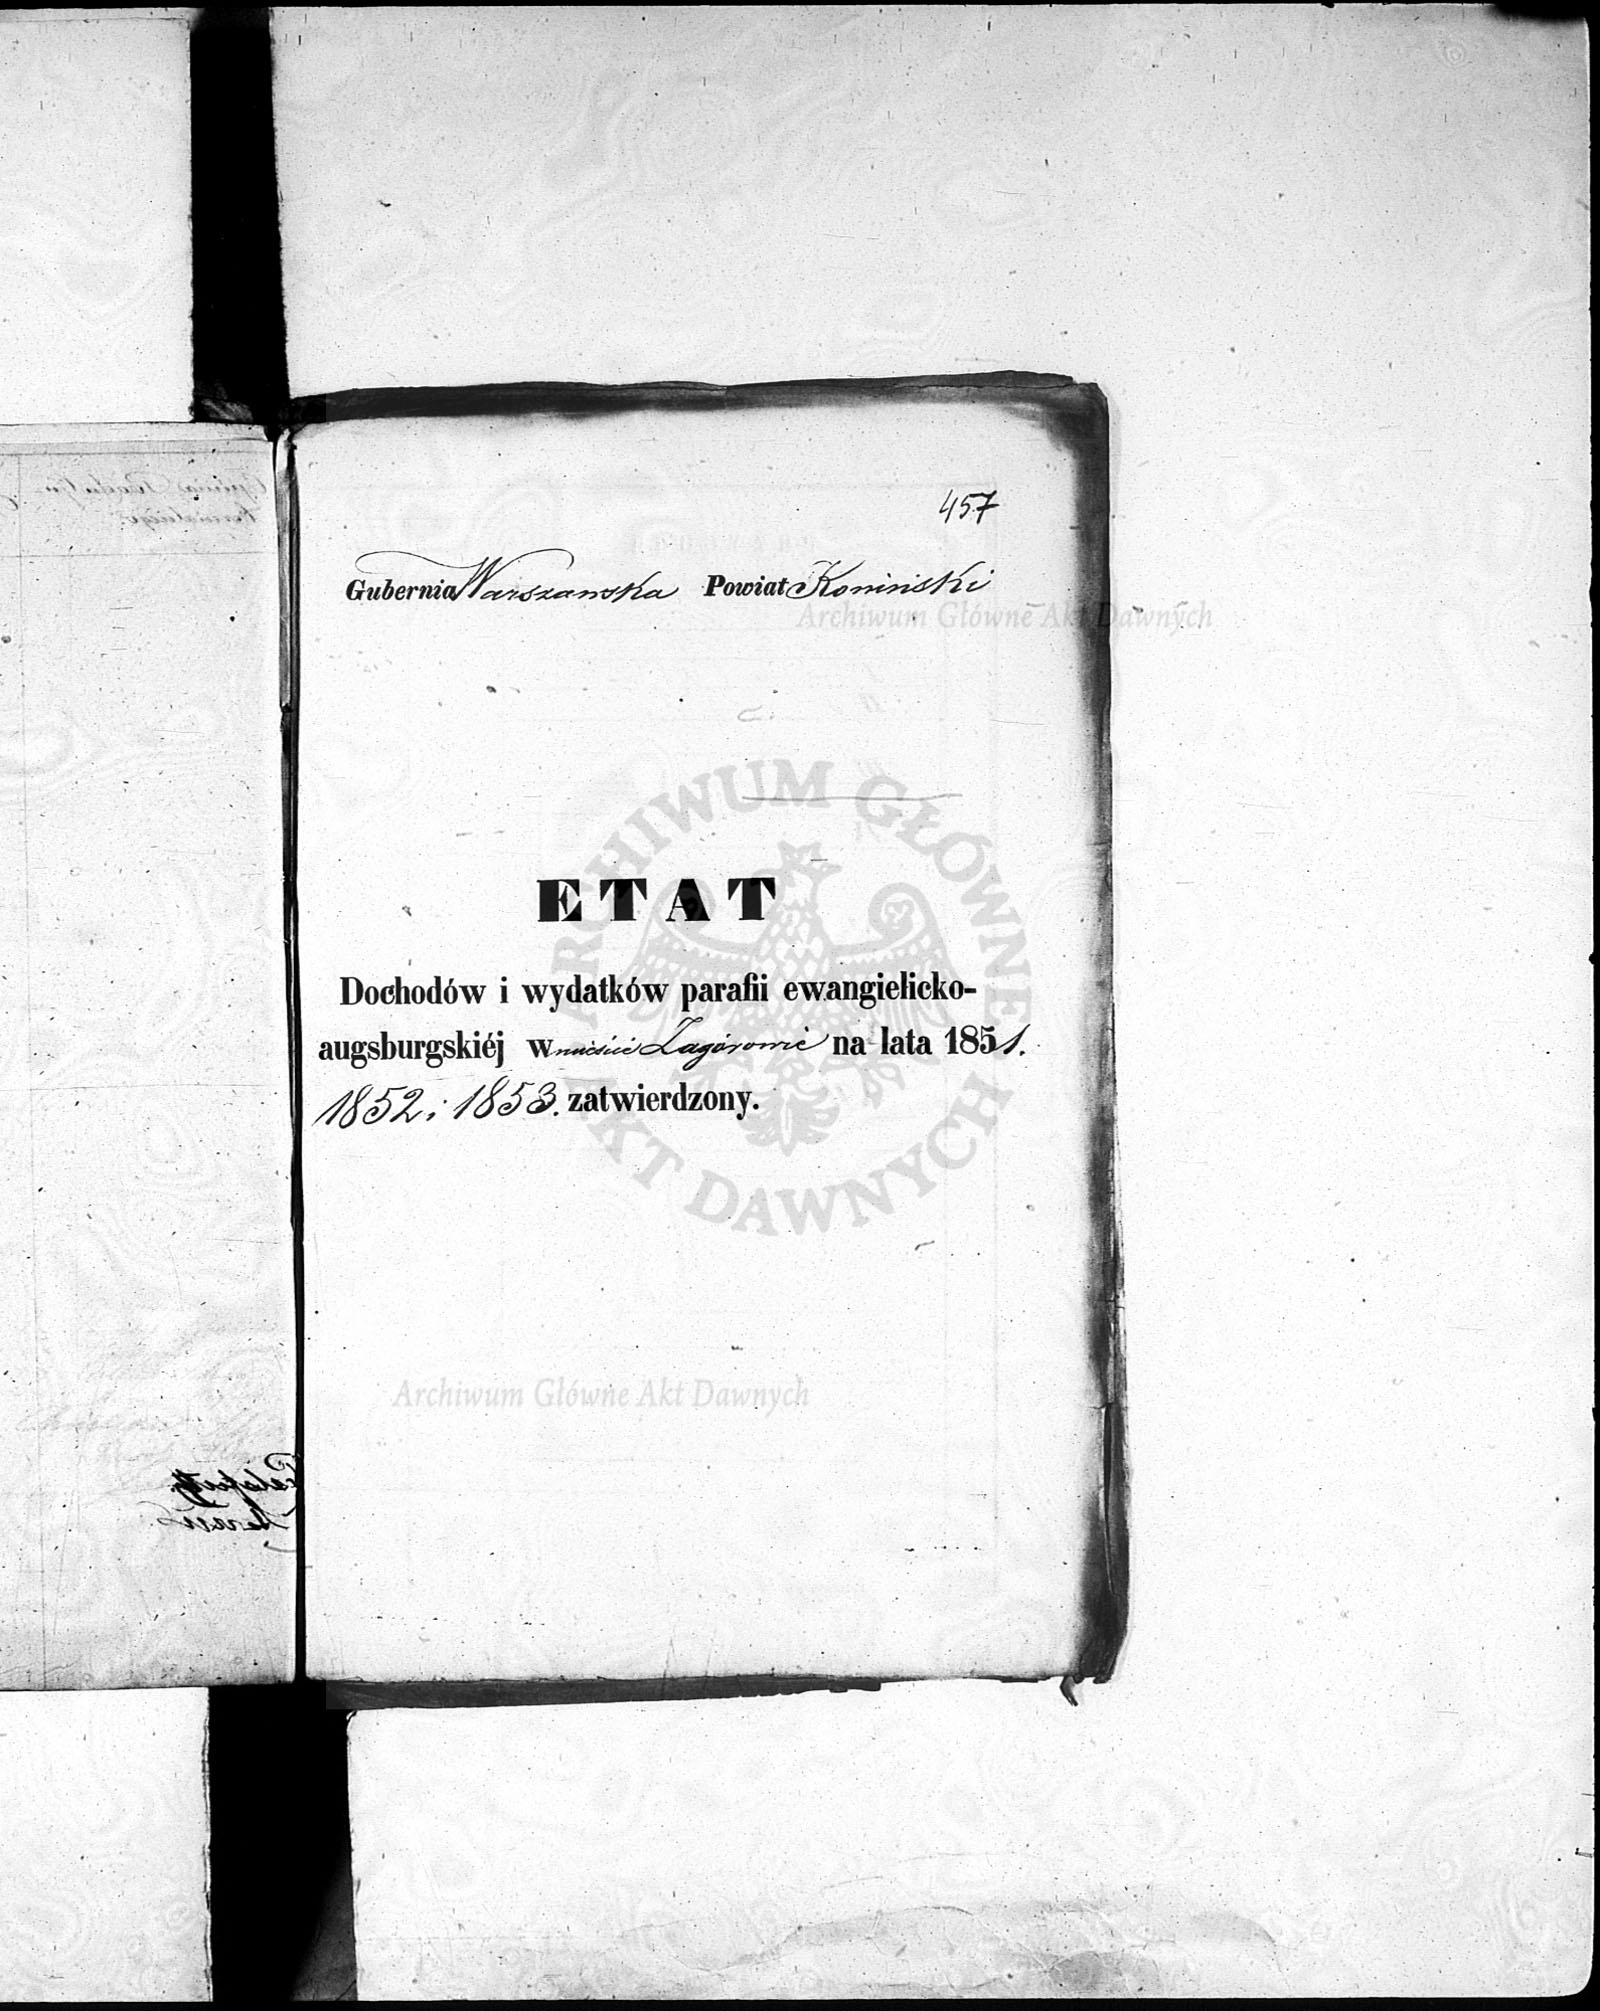 457
Gubernia Warszawska Powiat Koniński
Archiwum Główne Akt Dawnych
ARCHIWUM GŁÓWNE AKT DAWNYCH
ETAT
Dochodów i wydatków parafii ewangielicko-
augsburgskiéj w mieście Zagórowie na lata 1851.
1852 i 1853. zatwierdzony.
Archiwum Główne Akt Dawnych